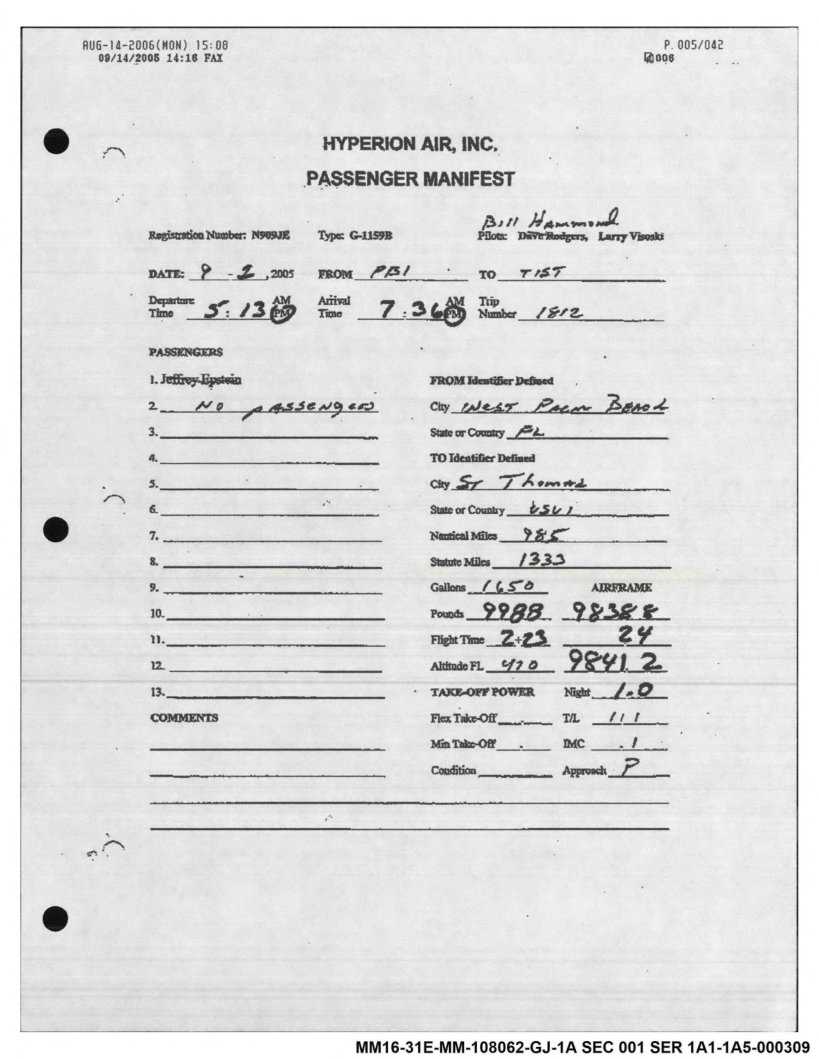 AUG-14-2006(MON) 15:08 P. 005/042
09/14/2005 14:16 FAX 006
HYPERION AIR, INC.
PASSENGER MANIFEST
Bill Hammond
Registration Number: N909JE Type: G-1159B Pilots: Dave Rodgers, Larry Visoski
DATE: 9 - 2 ,2005 FROM PBI TO TIST
Departure Time 5:13 AM PM Arrival Time 7:36 AM PM Trip Number 1812
PASSENGERS
1. Jeffrey Epstein FROM Identifier Defined
2. NO PASSENGERS City WEST PALM BEACH
3. State or Country FL
4. TO Identifier Defined
5. City ST Thomas
6. State or Country USVI
7. Nautical Miles 985
8. Statute Miles 1333
9. Gallons 1650 AIRFRAME
10. Pounds 9988 9838 8
11. Flight Time 2+23 24
12. Altitude FL 470 9841 2
13. TAKE-OFF POWER Night 1.0
COMMENTS Flex Take-Off T/L 1/1
Min Take-Off IMC .1
Condition Approach P
MM16-31E-MM-108062-GJ-1A SEC 001 SER 1A1-1A5-000309